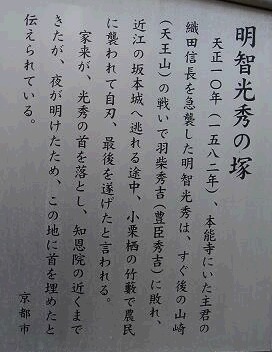 明智光秀の塚
天正一〇年（一五八二年）、本能寺にいた主君の
織田信長を急襲した明智光秀は、すぐ後の山崎
（天王山）の戦いで羽柴秀吉（豊臣秀吉）に敗れ、
近江の坂本城へ逃れる途中、小栗栖の竹藪で農民
に襲われて自刃、最後を遂げたと言われる。
家来が、光秀の首を落とし、知恩院の近くまで
きたが、夜が明けたため、この地に首を埋めたと
伝えられている。
京都市